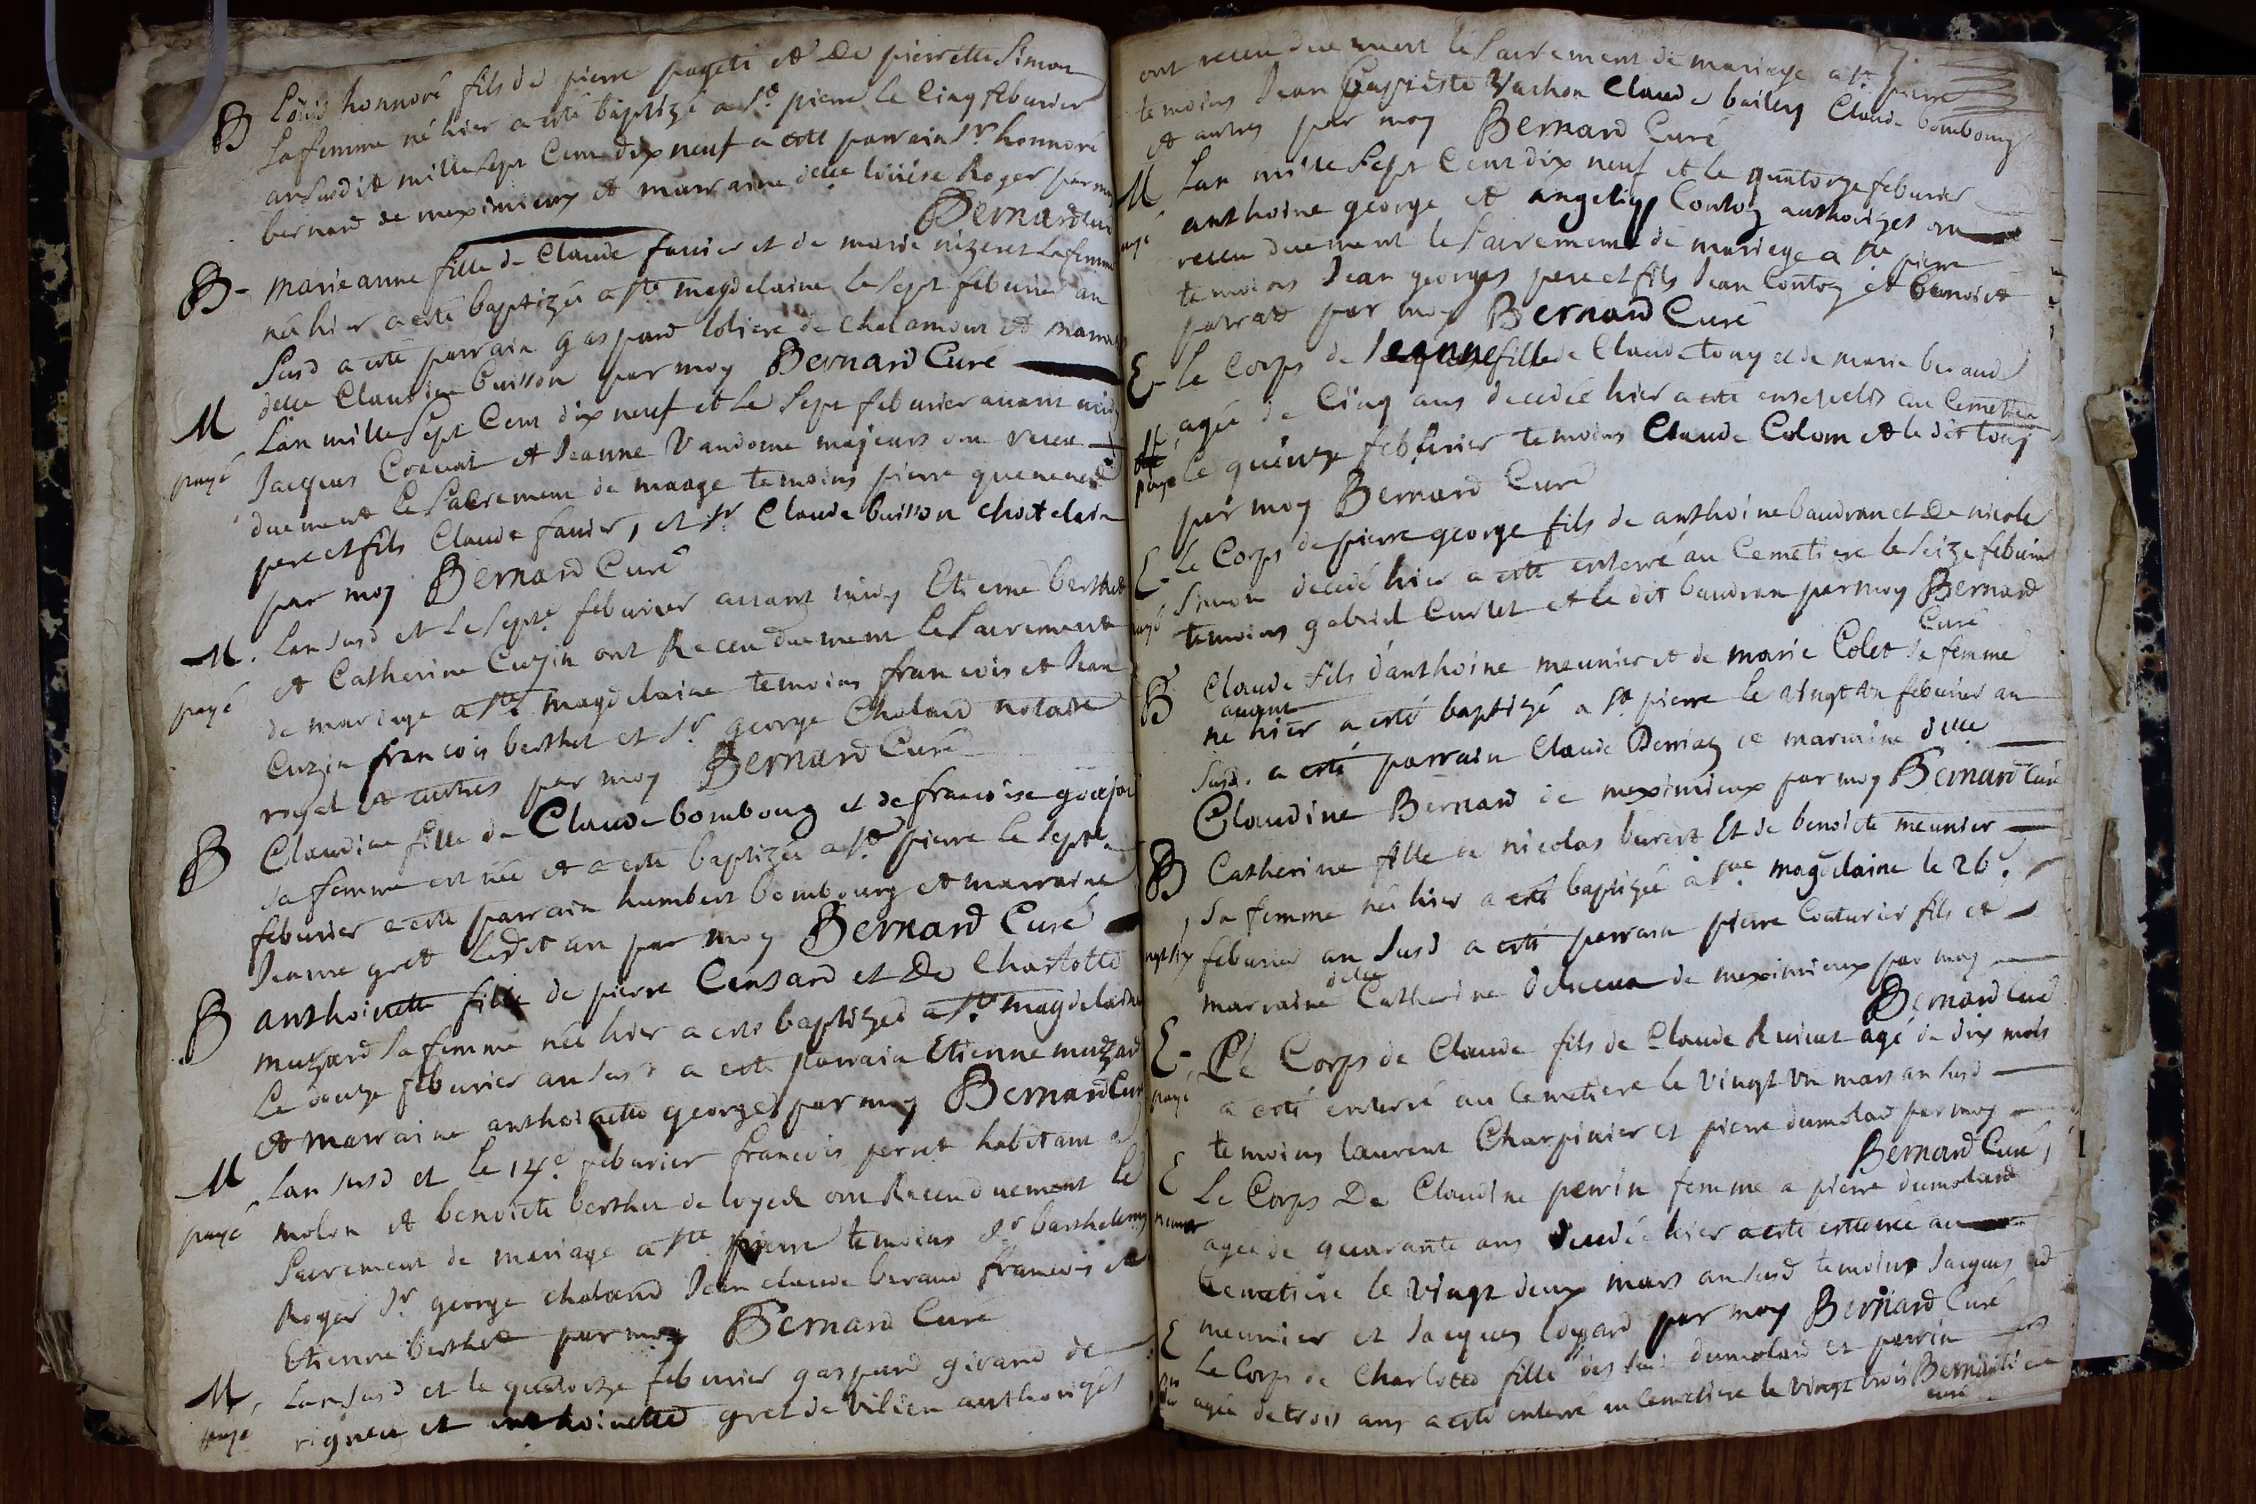 B Loüis honnoré fils de pierre pageti et De pierrette Simon
sa femme né hier a esté baptizé a St pierre le Cinq feburier
an susdit mille sept Cent dix neuf a esté parrain Sr honnoré
bernard de meximieux et marraine delle loüise Roger par moy
Bernard Curé
B marie anne fille de Claude favier et de marie nizeret sa femme
née hier a esté baptizée a Ste magdelaine le sept feburier an
Susd a esté parrain gaspard loliere de chalamont et marraine
delle Claudine buisson par moy Bernard Curé
M L'an mille Sept Cent dix neuf et le Sept feburier avant midy
payé Jacques et Jeanne Vandome majeurs ont receu
duement le Sacrement de mariage temoins pierre
pere et fils Claude favier, et Sr Claude buisson chatelain
par moy Bernard Curé
M. Lan susd et le Septe feburier avant midy Etienne berthet
et Catherine Cuzin ont Receu duement le Sacrement
payé de mariage a Ste magdelaine temoins francois et Jean
Cuzin francois berthet et Sr george Chaland notaire
royal et autres par moy Bernard Curé
B Claudine fille de Claude bombourg et de francoise
sa femme est née et a esté baptizée a St pierre le septe
feburier a esté parrain humbert bombourg et marraine
Jeanne gret ledit an par moy Bernard Curé
B anthoinette fille de pierre Censard et De Charlotte
muzard sa femme née hier a esté baptizée a Ste magdelaine
Le douze feburier an susd a esté parrain Etienne muzard
et marraine anthoinette georges par moy Bernard Curé
M Lan susd et le 14e feburier francois perret habitant a
payé molon et benoicte berthet de loyes ont Receu duement le
Sacrement de mariage a St pierre temoins Sr barthelemy
Roger Sr george chaland Jean claude beraud francois et
Etienne berthet par moy Bernard Curé
M, Lan susd et le quatorze feburier gaspard girand de
payé rigneu et anthoinette gret de vilieu authorizés
ont receu duement le Sacrement de mariage a St pierre
temoins Jean Baptiste Vachon Claude bailly Claude bombourg
et autres par moy Bernard Curé
M Lan mille Sept Cent dix neuf et le quatorze feburier
anthoine george et angeliq Contoz authorizés ont
payé receu duement le Sacrement de mariage a St pierre
temoins Jean georges pere et fils Jean Contoz et benoict
par moy Bernard Curé
E Le Corps de Jeanne fille de Claude touy et de marie beraud
agée de Cinq ans decedée hier a esté ensevelis au Cemetiere
payé le quinze feburier temoins Claude Colom et le dit touy
par moy Bernard Curé
E Le Corps de pierre george fils de anthoine baudran et De nicole
Simon decedé hier a esté enterré au Cemetiere le seize feburier
payé temoins gabriel Curlet et le dit baudran par moy Bernard
Curé
B Claude fils d'anthoine meunier et de marie Colet sa femme
avant
né hier a esté baptizé a St pierre le vingt un feburier an
susd. a esté parrain Claude Berriaz et marraine delle
Claudine Bernard de meximieux par moy Bernard Curé
B Catherine fille de nicolas buret Et de benoicte meunier
sa femme née hier a esté baptizée a Ste magdelaine le 26e
feburier an susd a esté parrain pierre Couturier fils et
marraine delle Catherine de meximieux par moy
Bernard Curé
E Le Corps de Claude fils de Claude agé de dix mois
payé a esté enterré au Cemetiere le vingt un mars an susd
temoins laurent Charpinier et pierre dumolard par moy
Bernard Curé
E Le Corps De Claudine perrin femme a pierre dumolard
agée de quarante ans decedée hier a esté enterrée au
Cemetiere le vingt deux mars an susd temoins Jacques
meunier et Jacques loyard par moy Bernard Curé
E Le Corps de Charlotte fille des susd dumolard et perrin
agée de trois ans a esté enterré au Cemetiere le vingt trois Bernard
curé